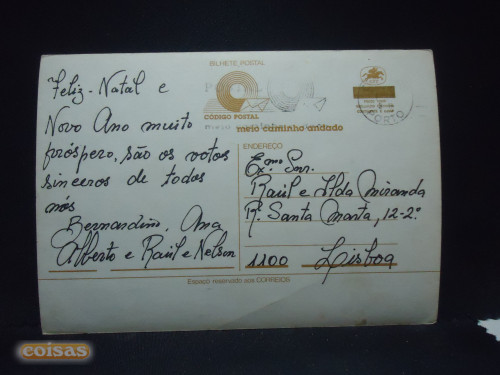 BILHETE POSTAL
Feliz-Natal e
Novo Ano muito
próspero, são os votos
sinceros de todos
nós
Bernardino, Ana
Alberto e Raúl e Nelson
CÓDIGO POSTAL
meio caminho andado
PORTO
ENDEREÇO
Exmo Snr.
Raúl e Ilda Miranda
R. Santa Marta, 12-2º
1100 Lisboa
Espaço reservado aos CORREIOS
coisas